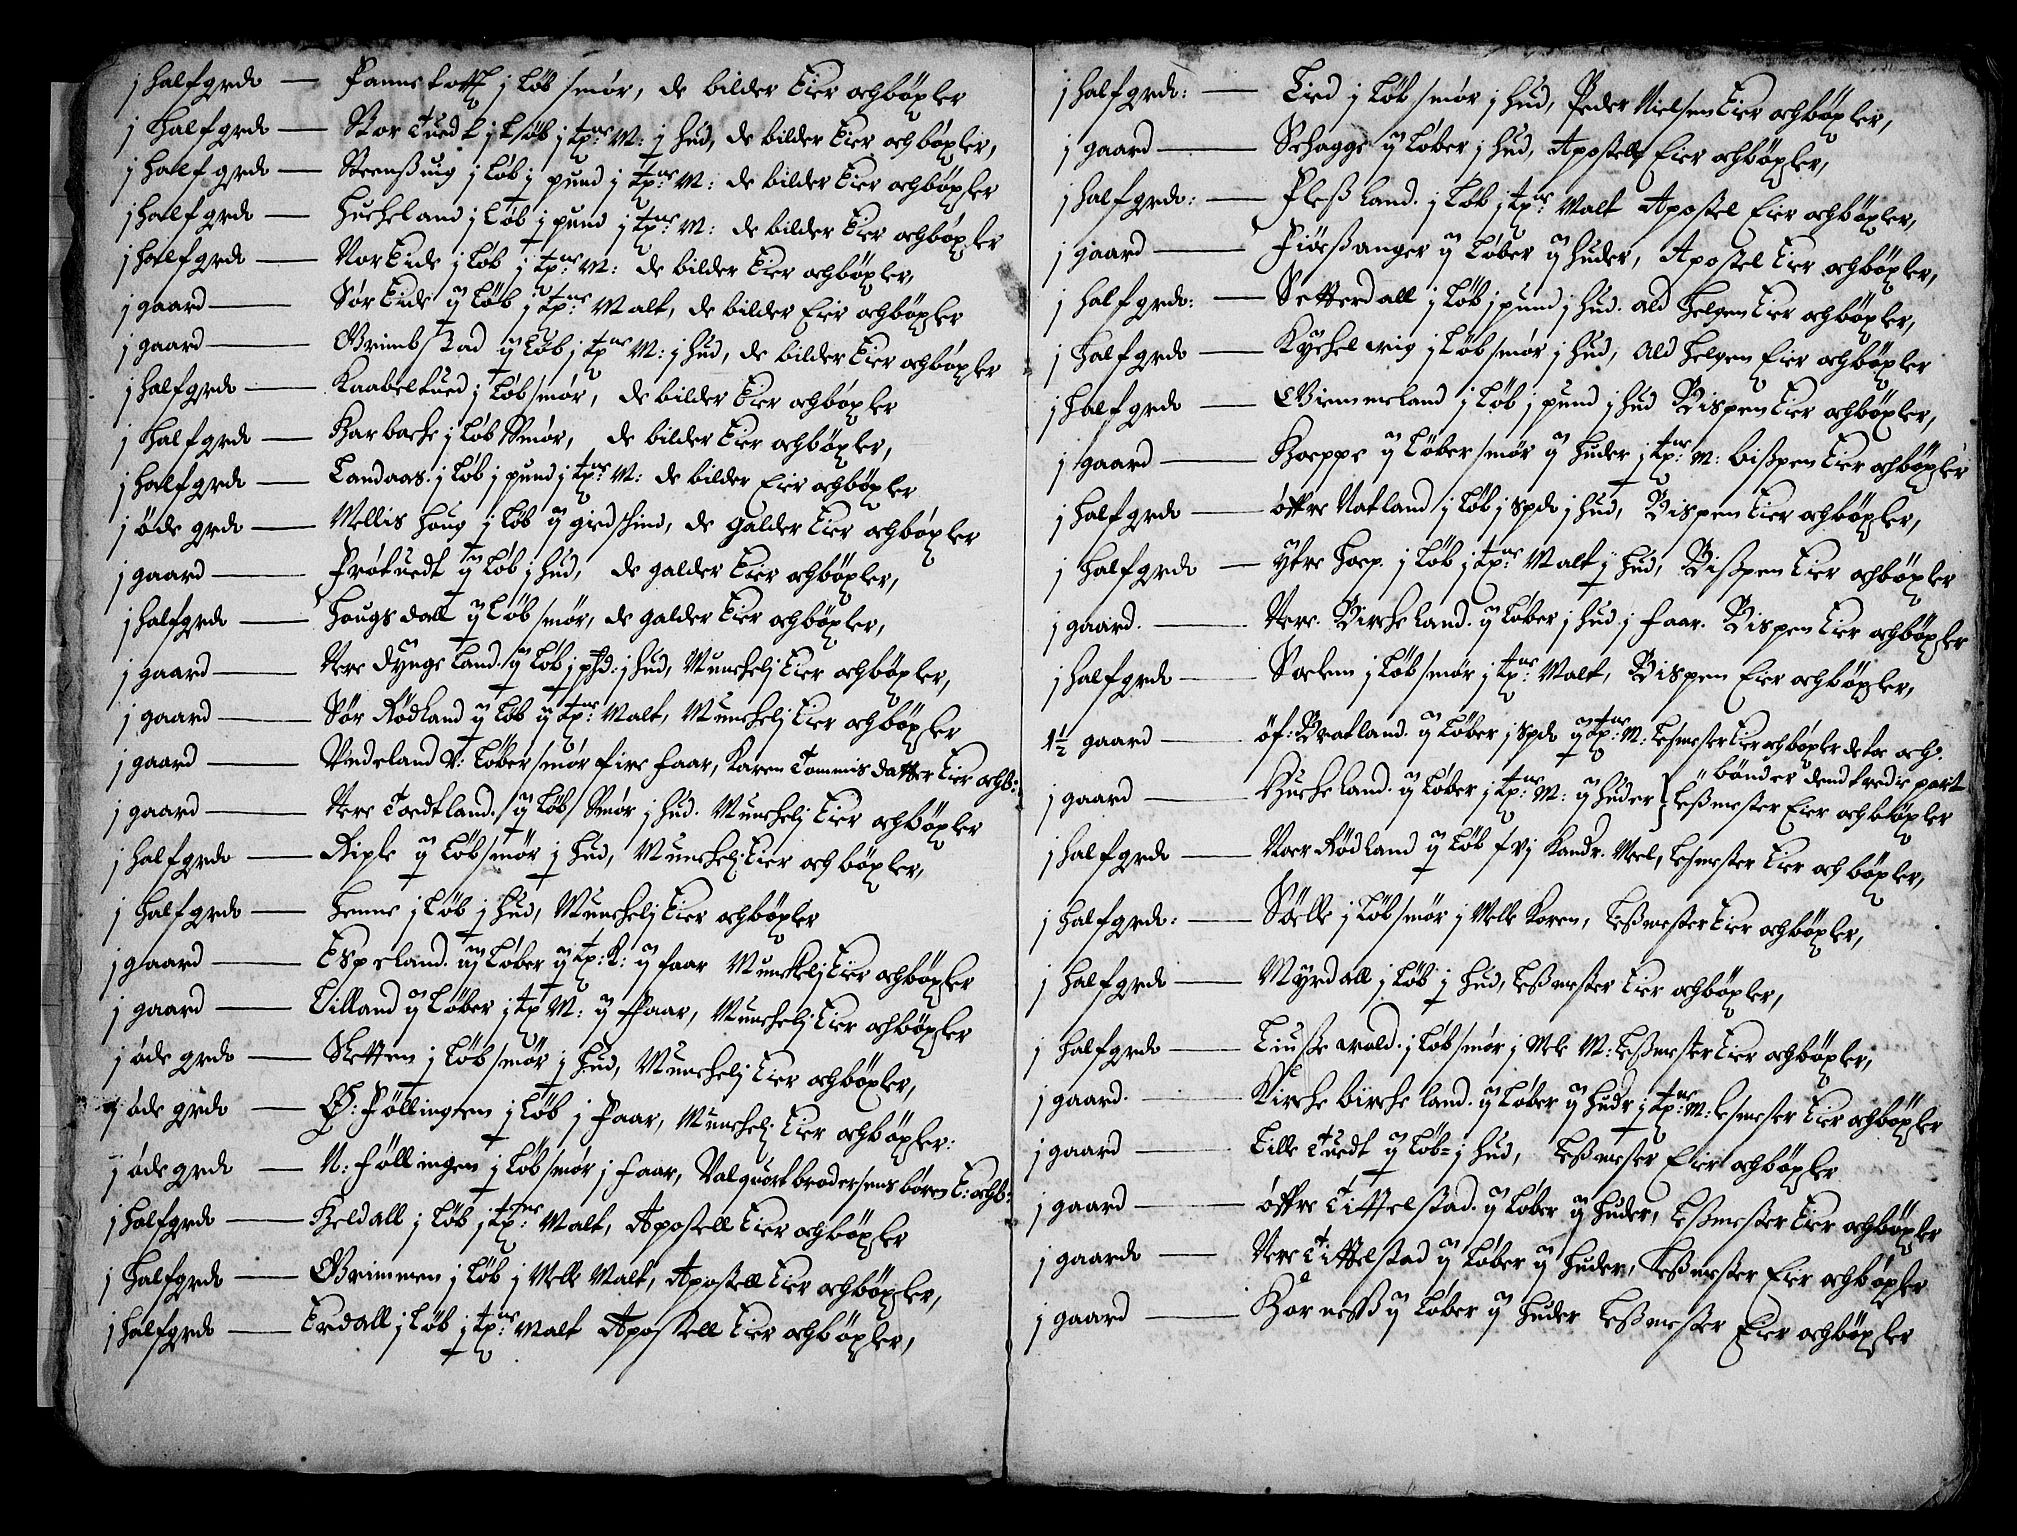 j halfgrdt — Pannetofft j Løb smør, de bilder Eier och bøxler
j halfgrdt — Stor Tuedt j Løb j tpn: M: j hud, de bilder Eier och bøxler,
j halfgrdt — Steensuig j Løb j pund j tpn: M: de bilder Eier och bøxler
j halfgrdt — Hucheland j Løb j pund j tpn: M: de bilder Eier och bøxler
j halfgrdt — Nor Eide j Løb j tpn: M: de bilder Eier och bøxler,
j gaard — Sør Eide ij Løb j tpn: Malt, de bilder Eier och bøxler
j gaard — Grimbstad ij Løb j tpn M: j hud, de bilder Eier och bøxler
j halfgrdt — Kaabeltued j Løb smør, de bilder Eier och bøxler
j halfgrdt — Harbacke j Løb Smør, de bilder Eier och bøxler,
j halfgrdt — Landaas j Løb j pund j tpn: M: de bilder Eier och bøxler
j øde grdt — Mellis houg j Løb ij giedschind, de galder Eier och bøxler
j gaard — Frøtuedt ij Løb j hud, de galder Eier och bøxler,
j halfgrdt — Hougsdall ij Løb smør, de galder Eier och bøxler,
j gaard — Nere Dyngeland ij Løb j pd: j hud, Munchelj Eier och bøxler,
j gaard — Sør Rødland ij Løb ij tpn: Malt, Munchelj Eier och bøxler
j gaard — Vndeland V: Løber smør fire faar, Karen Tommis datter Eier och b:
j gaard — Nere Toedtland ij Løb Smør j hud. Munchelj Eier och bøxler
j halfgrdt — Riple ij Løb smør j hud, Munchelj Eier och bøxler,
j halfgrdt — Henne j Løb j hud, Munchelj Eier och bøxler
j gaard — Espeland iij Løber ij tp: K: ij faar Munckelj Eier och bøxler
j gaard — Lilland ij Løber j tp M: ij Faar, Munchelj Eier och bøxler
j øde grdt — Sletten j Løb smør j hud, Munchelj Eier och bøxler,
j øde grdt — Ø: Føllingen j Løb j Faar, Munchelj Eier och bøxler:
j øde grdt — N: Føllingen j Løb smør j faar, Valquort brodersens børen E: och b:
j halfgrdt — Heldall j Løb j tpn: Malt, Apostell Eier och bøxler
j halfgrdt — Grimmen j Løb j Melle Malt, Apostell Eier och bøxler,
j halfgrdt — Erdall j Løb j tpn: Malt Apostell Eier och bøxler,
j halfgrdt: — Lied j Løb smør j hud, Peder Nielsen Eier och bøxler,
j gaard — Schagge ij Løber j hud, Apostell Eier och bøxler,
j halfgrdt: — Flesland. j Løb j tpn: Malt Apostel Eier och bøxler,
j gaard — Fiøesanger ij Løber ij huder, Apostel Eier och bøxler,
j halfgrdt: — Setterdall j Løb j pund j hud. ald helgen Eier och bøxler,
j halfgrdt — Kyckelvig j Løb smør j hud, Ald helgen Eier och bøxler
j halfgrdt — Giemmeland j Løb j pund j hud Bispen Eier och bøxler,
j gaard — Hoeppe ij Løber smør ij huder j tpn: M: bispen Eier och bøxler
j halfgrdt — øffre Natland j Løb j spdt j hud, Bispen Eier och bøxler,
j halfgrdt — ytre hoep. j Løb j tpn: Malt j hud, Bispen Eier och bøxler
j gaard. — Nere. Bircheland. ij Løber j hud j faar. Bispen Eier och bøxler
j halfgrdt — Soelem j Løb smør j tpn: Malt, Bispen Eier och bøxler,
1½ gaard — øf: Bratland. ij Løber j spdt ij tpn: M: Lesmester Eier och bøxler de toe och
bønder dend tredie part
j gaard — Hucheland. ij Løber j tpn: M: ij huder } Lesmester Eier och bøxler
j halfgrdt — Noer Rødland ij Løb s vj kandr. Meel, Lesmester Eier och bøxler,
j halfgrdt: — Sølle j Løb smør j Melle Koren, Lesmester Eier och bøxler,
j halfgrdt — Myrdall j Løb j hud, Lesmester Eier och bøxler,
j halfgrdt — Liusse vold. j Løb smør j Mele M: Lesmester Eier och bøxler,
j gaard. — Kirche bircheland. ij Løber ij hudr j tpn: M: Lesmester Eier och bøxler
j gaard — Lille Tuedt ij Løb j hud, Lesmester Eier och bøxler
j gaard — øffre Tittelstad. ij Løber ij huder, Lesmester Eier och bøxler
j gaardt — Nere Tittelstad ij Løber ij huder, Lesmester Eier och bøxler
j gaard — Horness ij Løber ij huder Lesmester Eier och bøxler